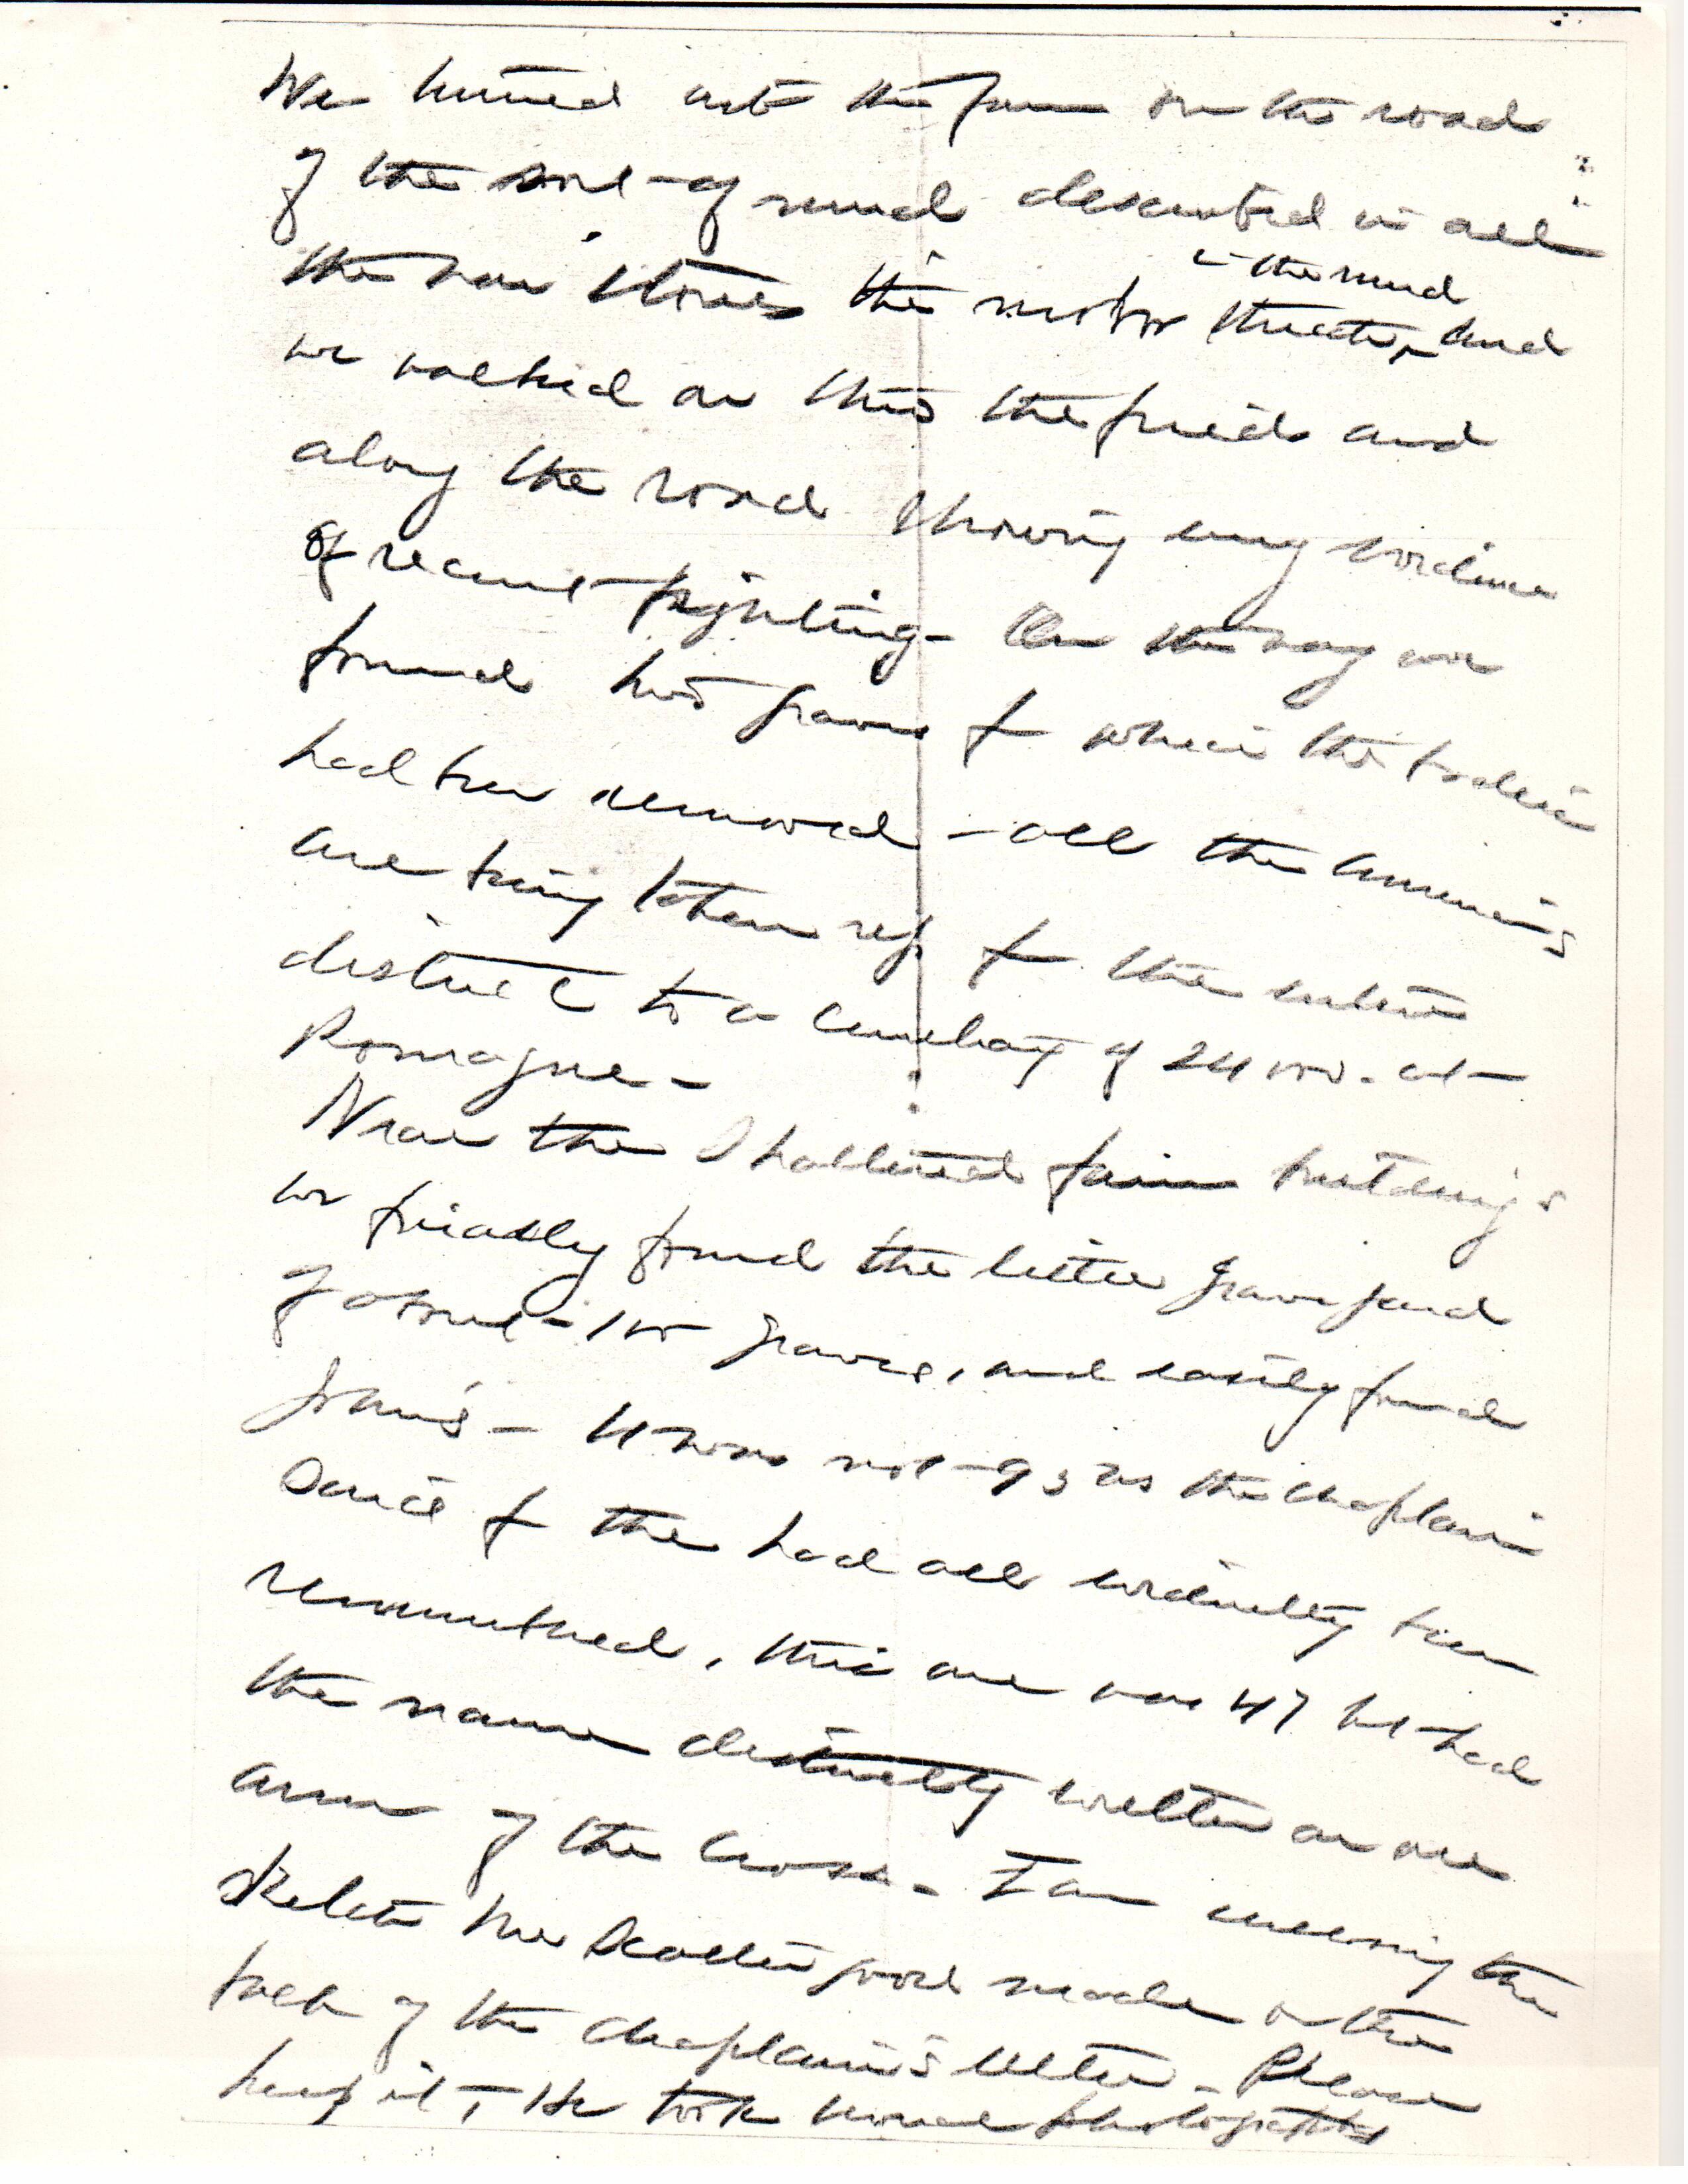 We turned into the farm on the road
of the sort of mud described in all
the war stories the motor stuck in the mud and
we walked on thro the fields and
along the road showing every evidence
of recent fighting - On the way we
found two graves fr which the bodies
had been removed - all the Americans
are being taken up fr the entire
district to a cemetery of 24000. at
Romagne -
Near the shattered farm buildings
we quickly found the little grave yard
of about 100 graves, and easily found
- It was not 93 as the chaplain
said fr they had all evidently been
renumbered, this one was 47 but had
the name distinctly written on one
arm of the cross. - I am enclosing the
sketch Mr made on the
back of the chaplain's letter - Please
keep it, - He took several photographs